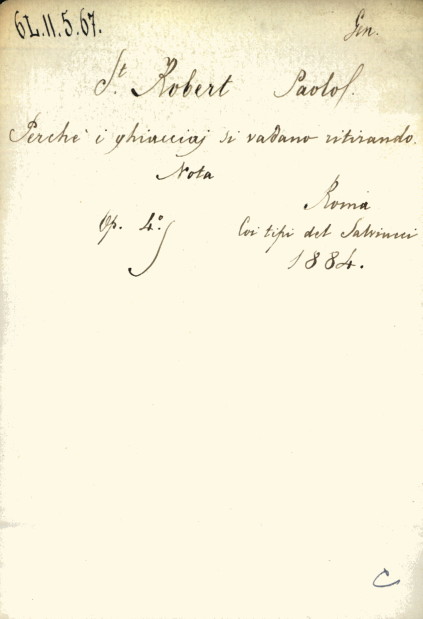 6L.11.5.67. Gen.
St. Robert Paolo.
Perchè i ghiacciaj si vadano ritirando.
Nota
Roma
Op. 4.° Coi tipi del Salviucci
1884.
C